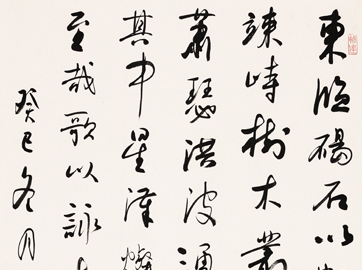 東臨碣石以
竦峙樹木叢
蕭瑟洪波涌
其中星漢燦
至哉歌以詠
癸巳冬月